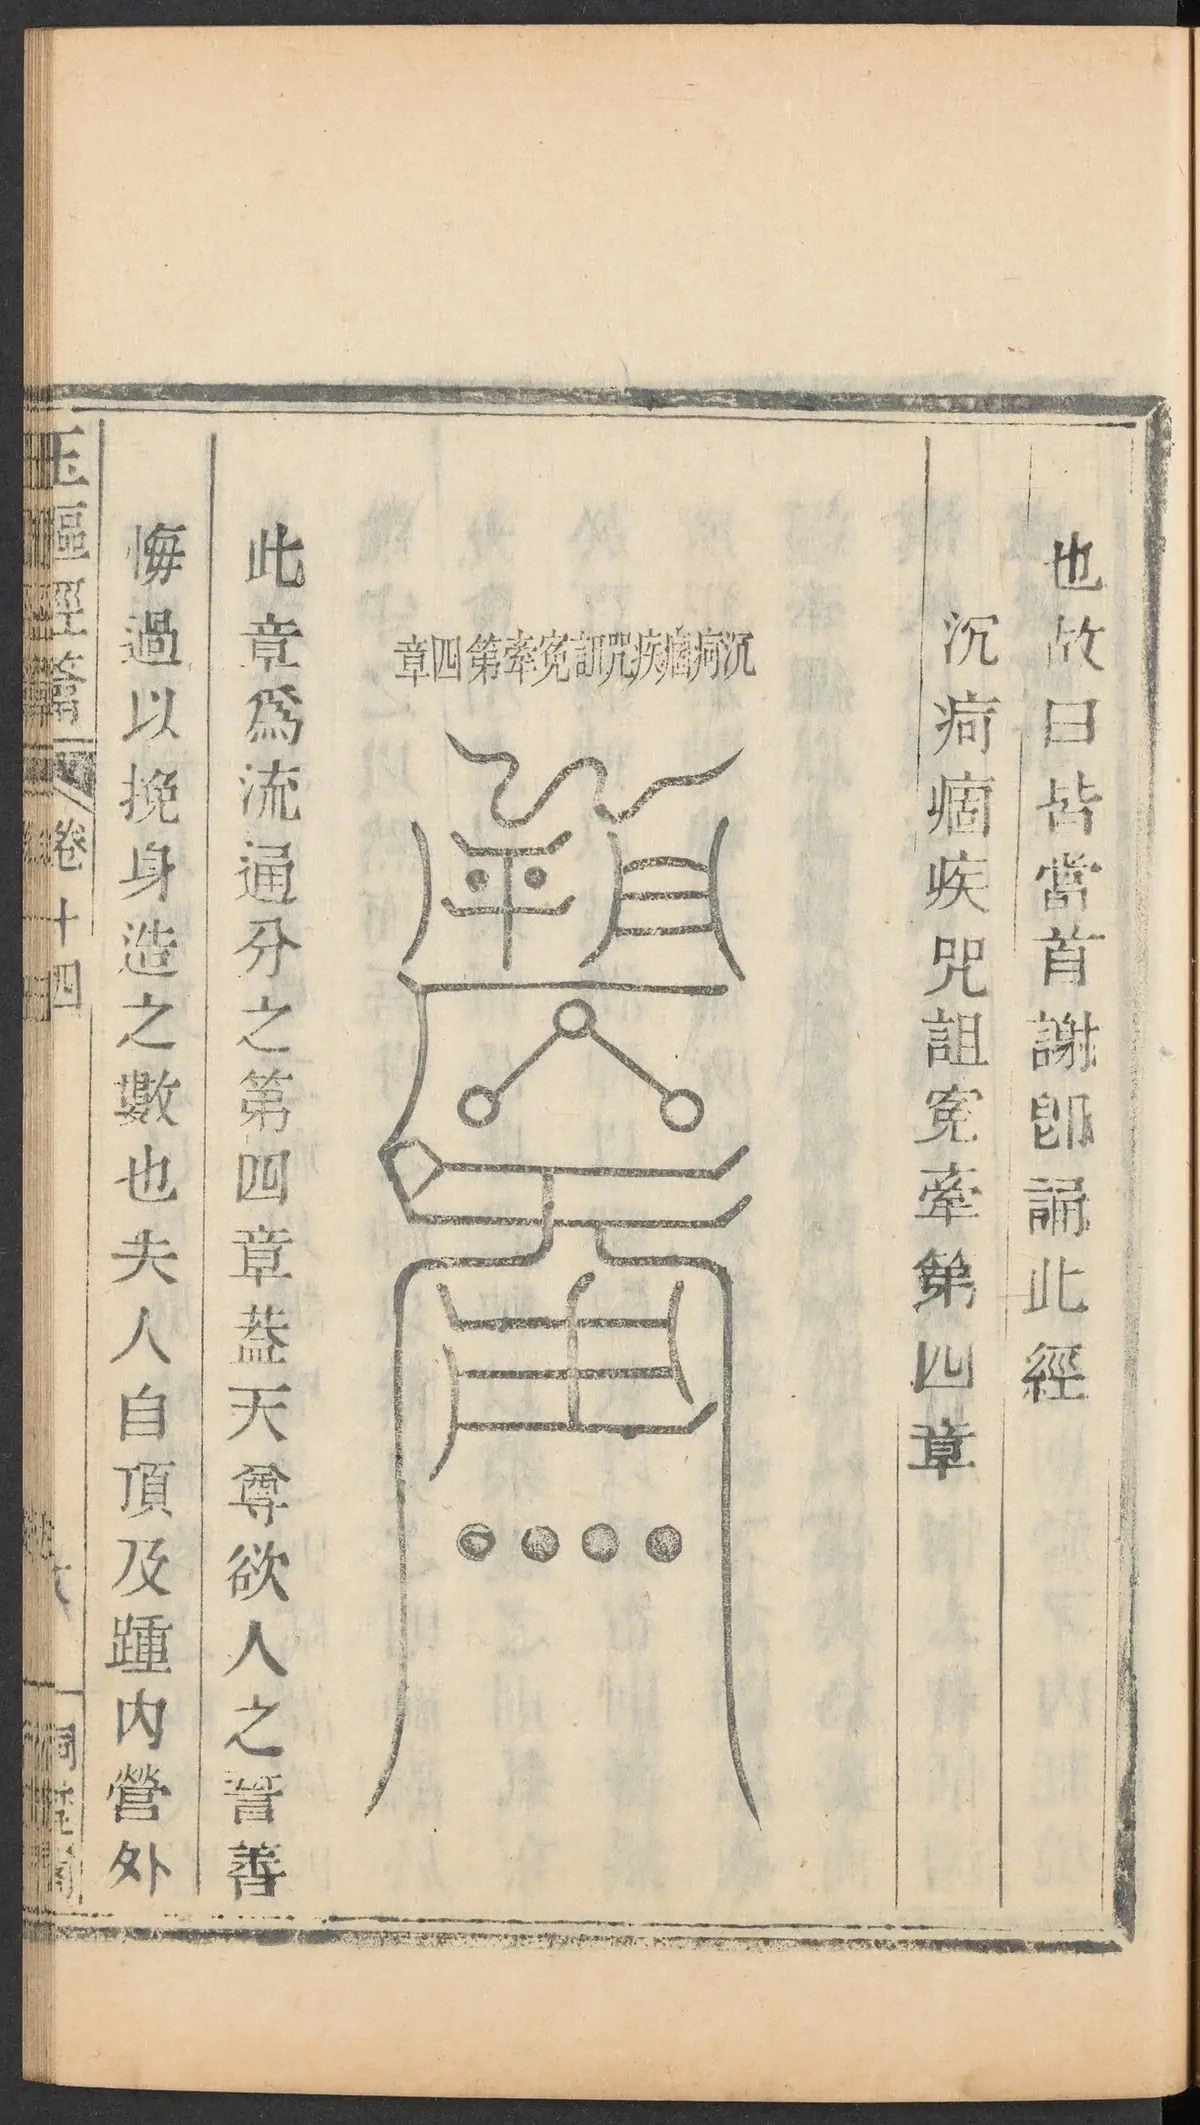 也故曰皆當首謝卽誦此經
沉痾痼疾咒詛寃牽第四章
沉痾痼疾咒詛寃牽第四章
此章爲流通分之第四章葢天尊欲人之晉善
悔過以挽身造之數也夫人自頂及踵內營外
玉樞經籥
卷十四